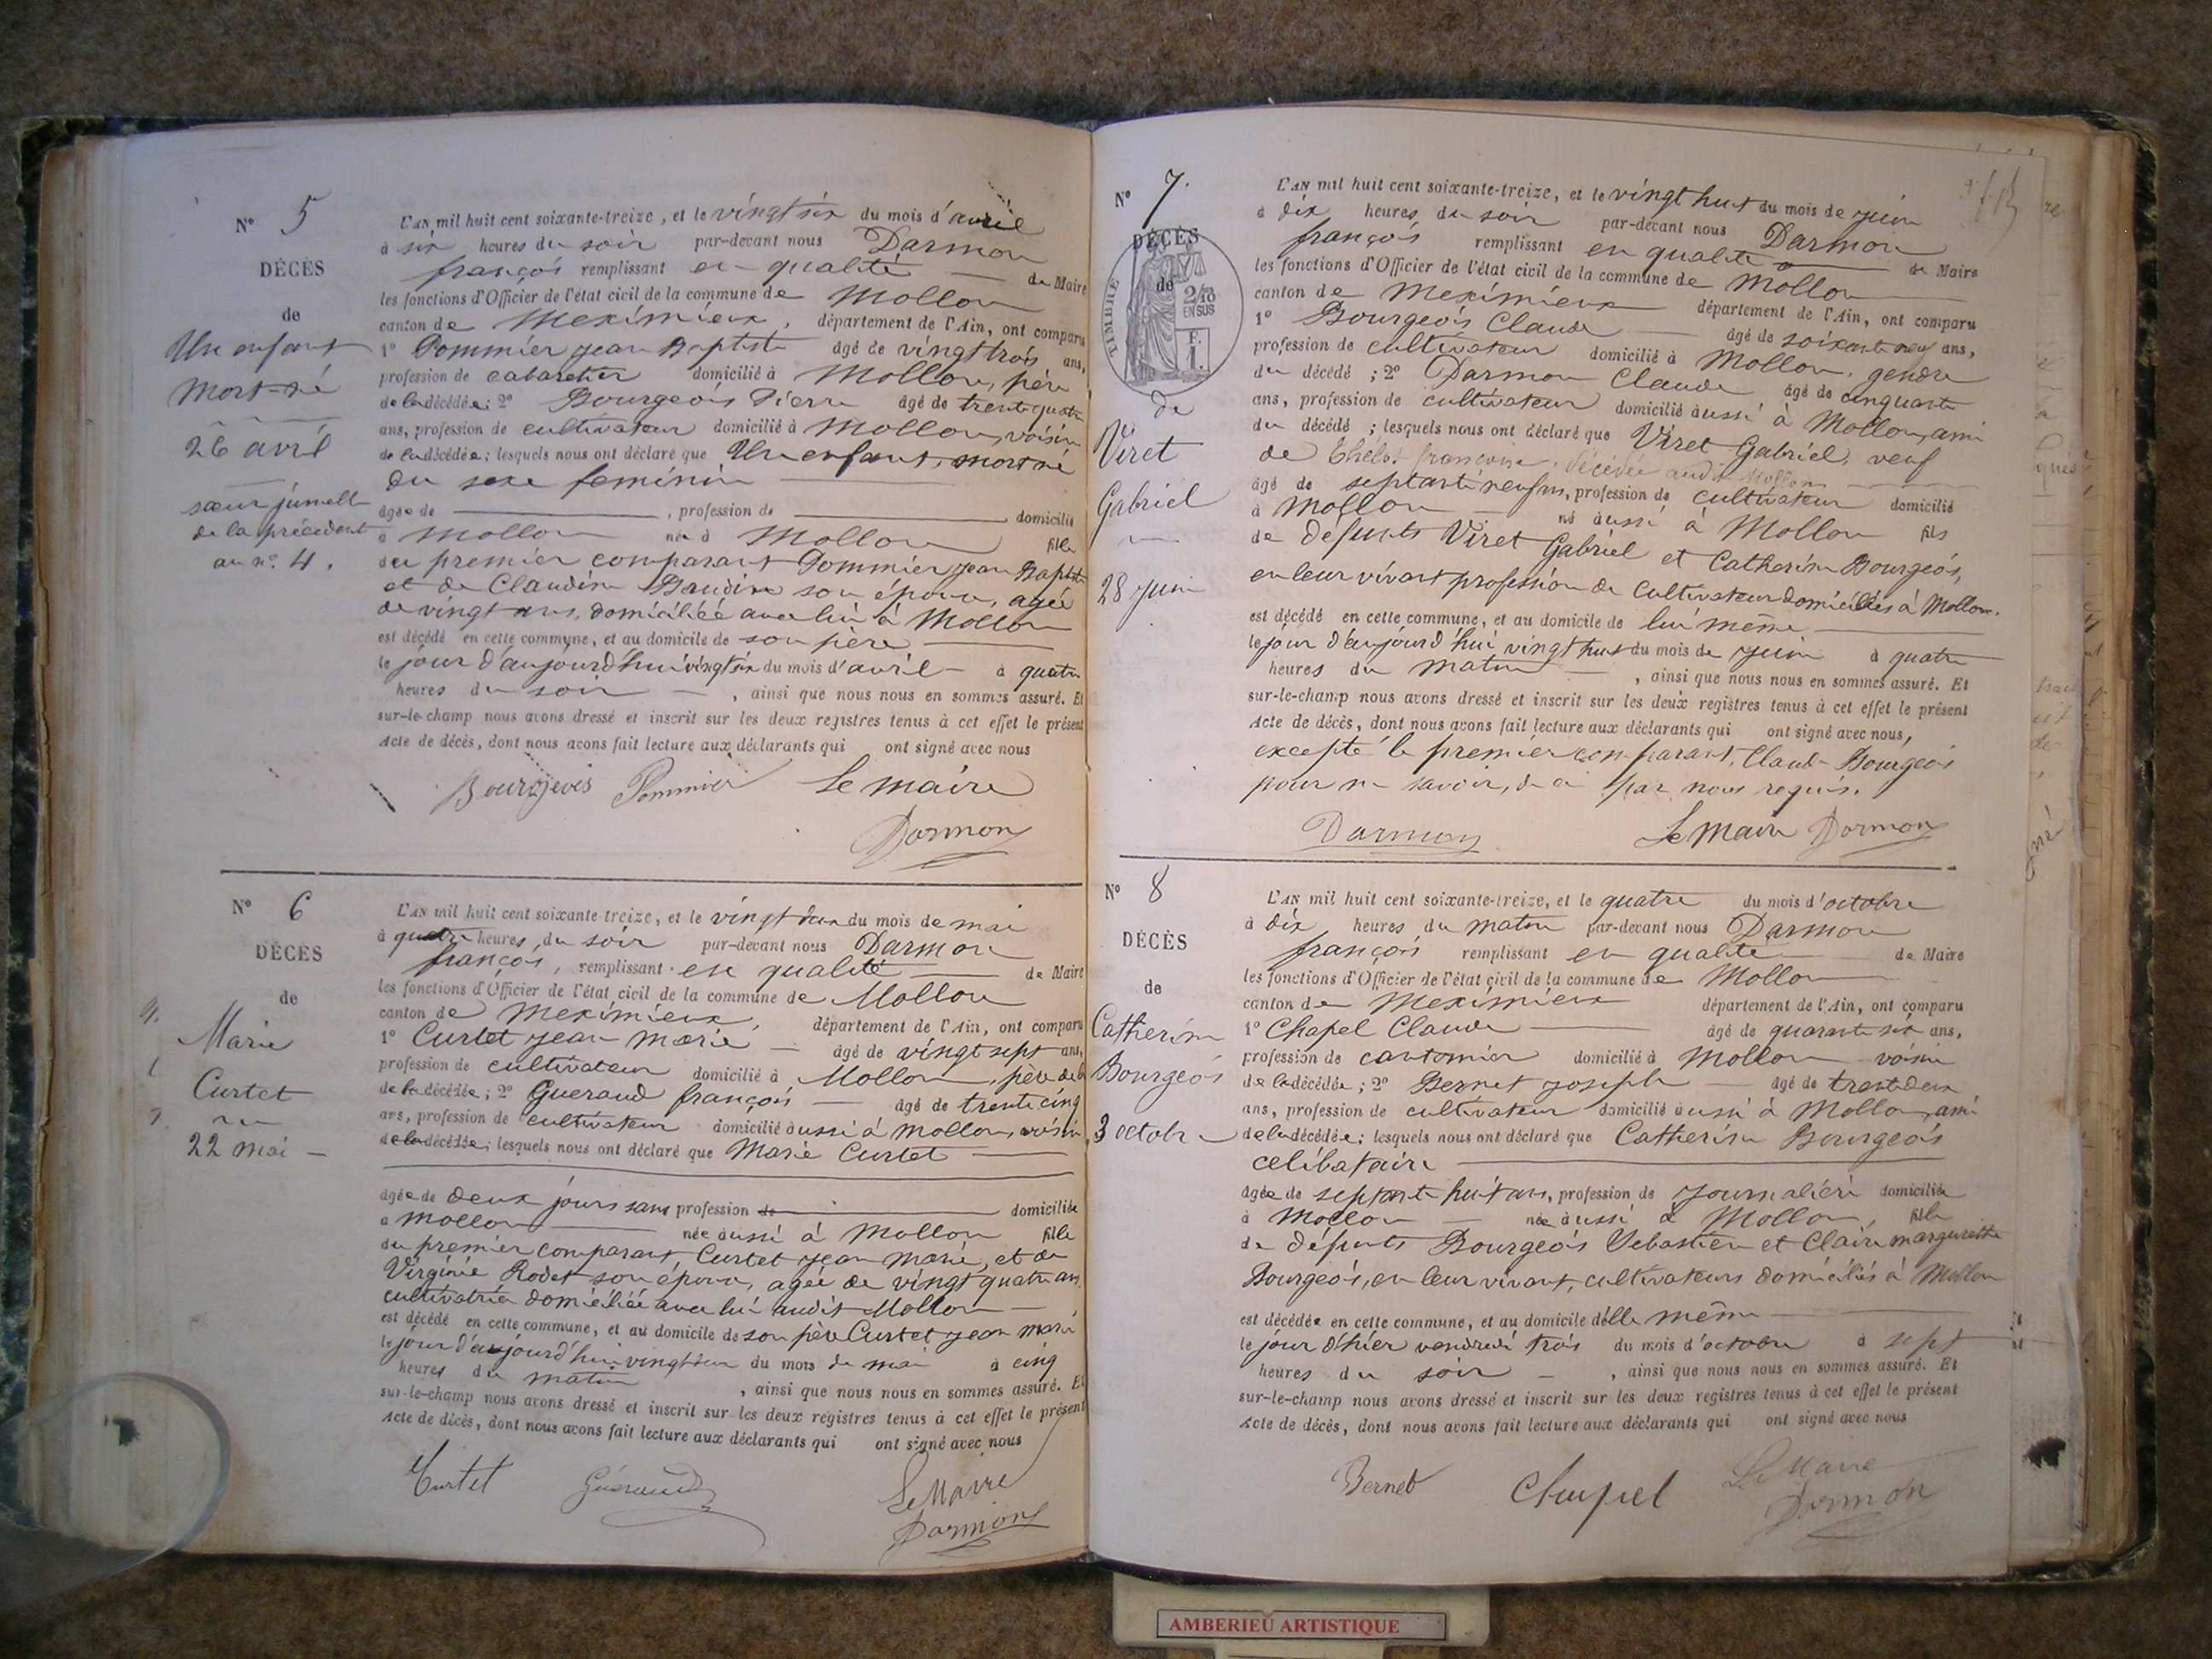 N° 5
DÉCÈS
de
Un enfant
mort-né
26 avril
sœur jumelle
de la précédente
au n° 4.
L'AN mil huit cent soixante-treize, et le vingt six du mois d'avril
à six heures du soir par-devant nous Darmon
françois remplissant en qualité de Maire
les fonctions d'Officier de l'état civil de la commune de Mollon
canton de Meximieux, département de l'Ain, ont comparu
1° Pommier jean Baptiste âgé de vingt trois ans,
profession de cabaretier domicilié à Mollon, père
de la décédée; 2° Bourgeois Pierre âgé de trente quatre
ans, profession de cultivateur domicilié à Mollon, voisin
de la décédée; lesquels nous ont déclaré que Un enfant, mort né
du sexe feminin
âgée de , profession de domicilié
à Mollon née à Mollon fille
du premier comparant Pommier jean Baptiste
et de Claudine Baudin son épouse, agée
de vingt ans, domiciliée avec lui à Mollon
est décédé en cette commune, et au domicile de son père
le jour d'aujourd'hui vingt six du mois d'avril à quatre
heures du soir , ainsi que nous nous en sommes assuré. Et
sur-le-champ nous avons dressé et inscrit sur les deux registres tenus à cet effet le présent
Acte de décès, dont nous avons fait lecture aux déclarants qui ont signé avec nous
Bourgeois Pommier Le maire
Darmon
N° 6
DÉCÈS
de
Marie
Curtet
22 mai
L'AN mil huit cent soixante-treize, et le vingt deux du mois de mai
à quatre heures du soir par-devant nous Darmon
françois, remplissant en qualité de Maire
les fonctions d'Officier de l'état civil de la commune de Mollon
canton de Meximieux, département de l'Ain, ont comparu
1° Curtet jean marie âgé de vingt sept ans,
profession de cultivateur domicilié à Mollon, père de la
de la décédée; 2° Gueraud françois âgé de trente cinq
ans, profession de cultivateur domicilié aussi à Mollon, voisin
de la décédée; lesquels nous ont déclaré que Marie Curtet
âgée de deux jours sans profession de domiciliée
à Mollon née aussi à Mollon fille
du premier comparant Curtet jean marie, et de
Virginie Rodet son épouse, agée de vingt quatre ans,
cultivatrice domiciliée avec lui audit Mollon
est décédé en cette commune, et au domicile de son père Curtet jean marie
le jour d'aujourd'hui vingt deux du mois de mai à cinq
heures du matin , ainsi que nous nous en sommes assuré. Et
sur-le-champ nous avons dressé et inscrit sur les deux registres tenus à cet effet le présent
Acte de décès, dont nous avons fait lecture aux déclarants qui ont signé avec nous
Curtet Guéraud Le Maire
Darmon
N° 7.
DÉCÈS
de
TIMBRE
2/10
EN SUS
F.
1.
de
Viret
Gabriel
28 juin
L'AN mil huit cent soixante-treize, et le vingt huit du mois de juin
à dix heures du soir par-devant nous Darmon
françois remplissant en qualité de Maire
les fonctions d'Officier de l'état civil de la commune de Mollon
canton de Meximieux département de l'Ain, ont comparu
1° Bourgeois Claude âgé de soixante neuf ans,
profession de cultivateur domicilié à Mollon, gendre
du décédé; 2° Darmon Claude âgé de cinquante
ans, profession de cultivateur domicilié aussi à Mollon, ami
du décédé; lesquels nous ont déclaré que Viret Gabriel, veuf
de françoise, décédée audit Mollon
âgé de septante neuf ans, profession de cultivateur domicilié
à Mollon né aussi à Mollon fils
de défunts Viret Gabriel et Catherine Bourgeois,
en leur vivant profession de cultivateur domiciliés à Mollon.
est décédé en cette commune, et au domicile de lui même
le jour d'aujourd'hui vingt huit du mois de juin à quatre
heures du matin , ainsi que nous nous en sommes assuré. Et
sur-le-champ nous avons dressé et inscrit sur les deux registres tenus à cet effet le présent
Acte de décès, dont nous avons fait lecture aux déclarants qui ont signé avec nous,
excepté le premier comparant, Claude Bourgeois
pour ne savoir, de ce par nous requis.
Darmon Le Maire Darmon
N° 8
DÉCÈS
de
Catherine
Bourgeois
3 octobre
L'AN mil huit cent soixante-treize, et le quatre du mois d'octobre
à dix heures du matin par-devant nous Darmon
françois remplissant en qualité de Maire
les fonctions d'Officier de l'état civil de la commune de Mollon
canton de Meximieux département de l'Ain, ont comparu
1° Chapel Claude âgé de quarante six ans,
profession de cantonnier domicilié à Mollon voisin
de la décédée; 2° Bernet joseph âgé de trente deux
ans, profession de cultivateur domicilié aussi à Mollon, ami
de la décédée; lesquels nous ont déclaré que Catherine Bourgeois
celibataire
âgée de septante huit ans, profession de journalière domiciliée
à Mollon née aussi à Mollon, fille
de défunts Bourgeois Sebastien et Claire marguerite
Bourgeois, en leur vivant, cultivateurs domiciliés à Mollon
est décédée en cette commune, et au domicile d'elle même
le jour d'hier vendredi trois du mois d'octobre à sept
heures du soir , ainsi que nous nous en sommes assuré. Et
sur-le-champ nous avons dressé et inscrit sur les deux registres tenus à cet effet le présent
Acte de décès, dont nous avons fait lecture aux déclarants qui ont signé avec nous
Bernet Chapel Le Maire
Darmon
AMBERIEU ARTISTIQUE